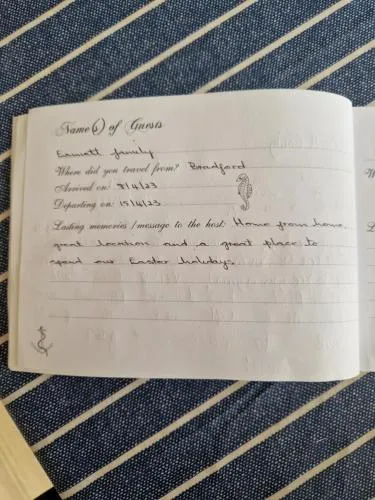 Name(s) of Guests
Emmett family
Where did you travel from? Bradford
Arrived on: 8/4/23
Departing on: 15/4/23
Lasting memories / message to the host: Home from home,
great location and a great place to
spend our Easter holidays.